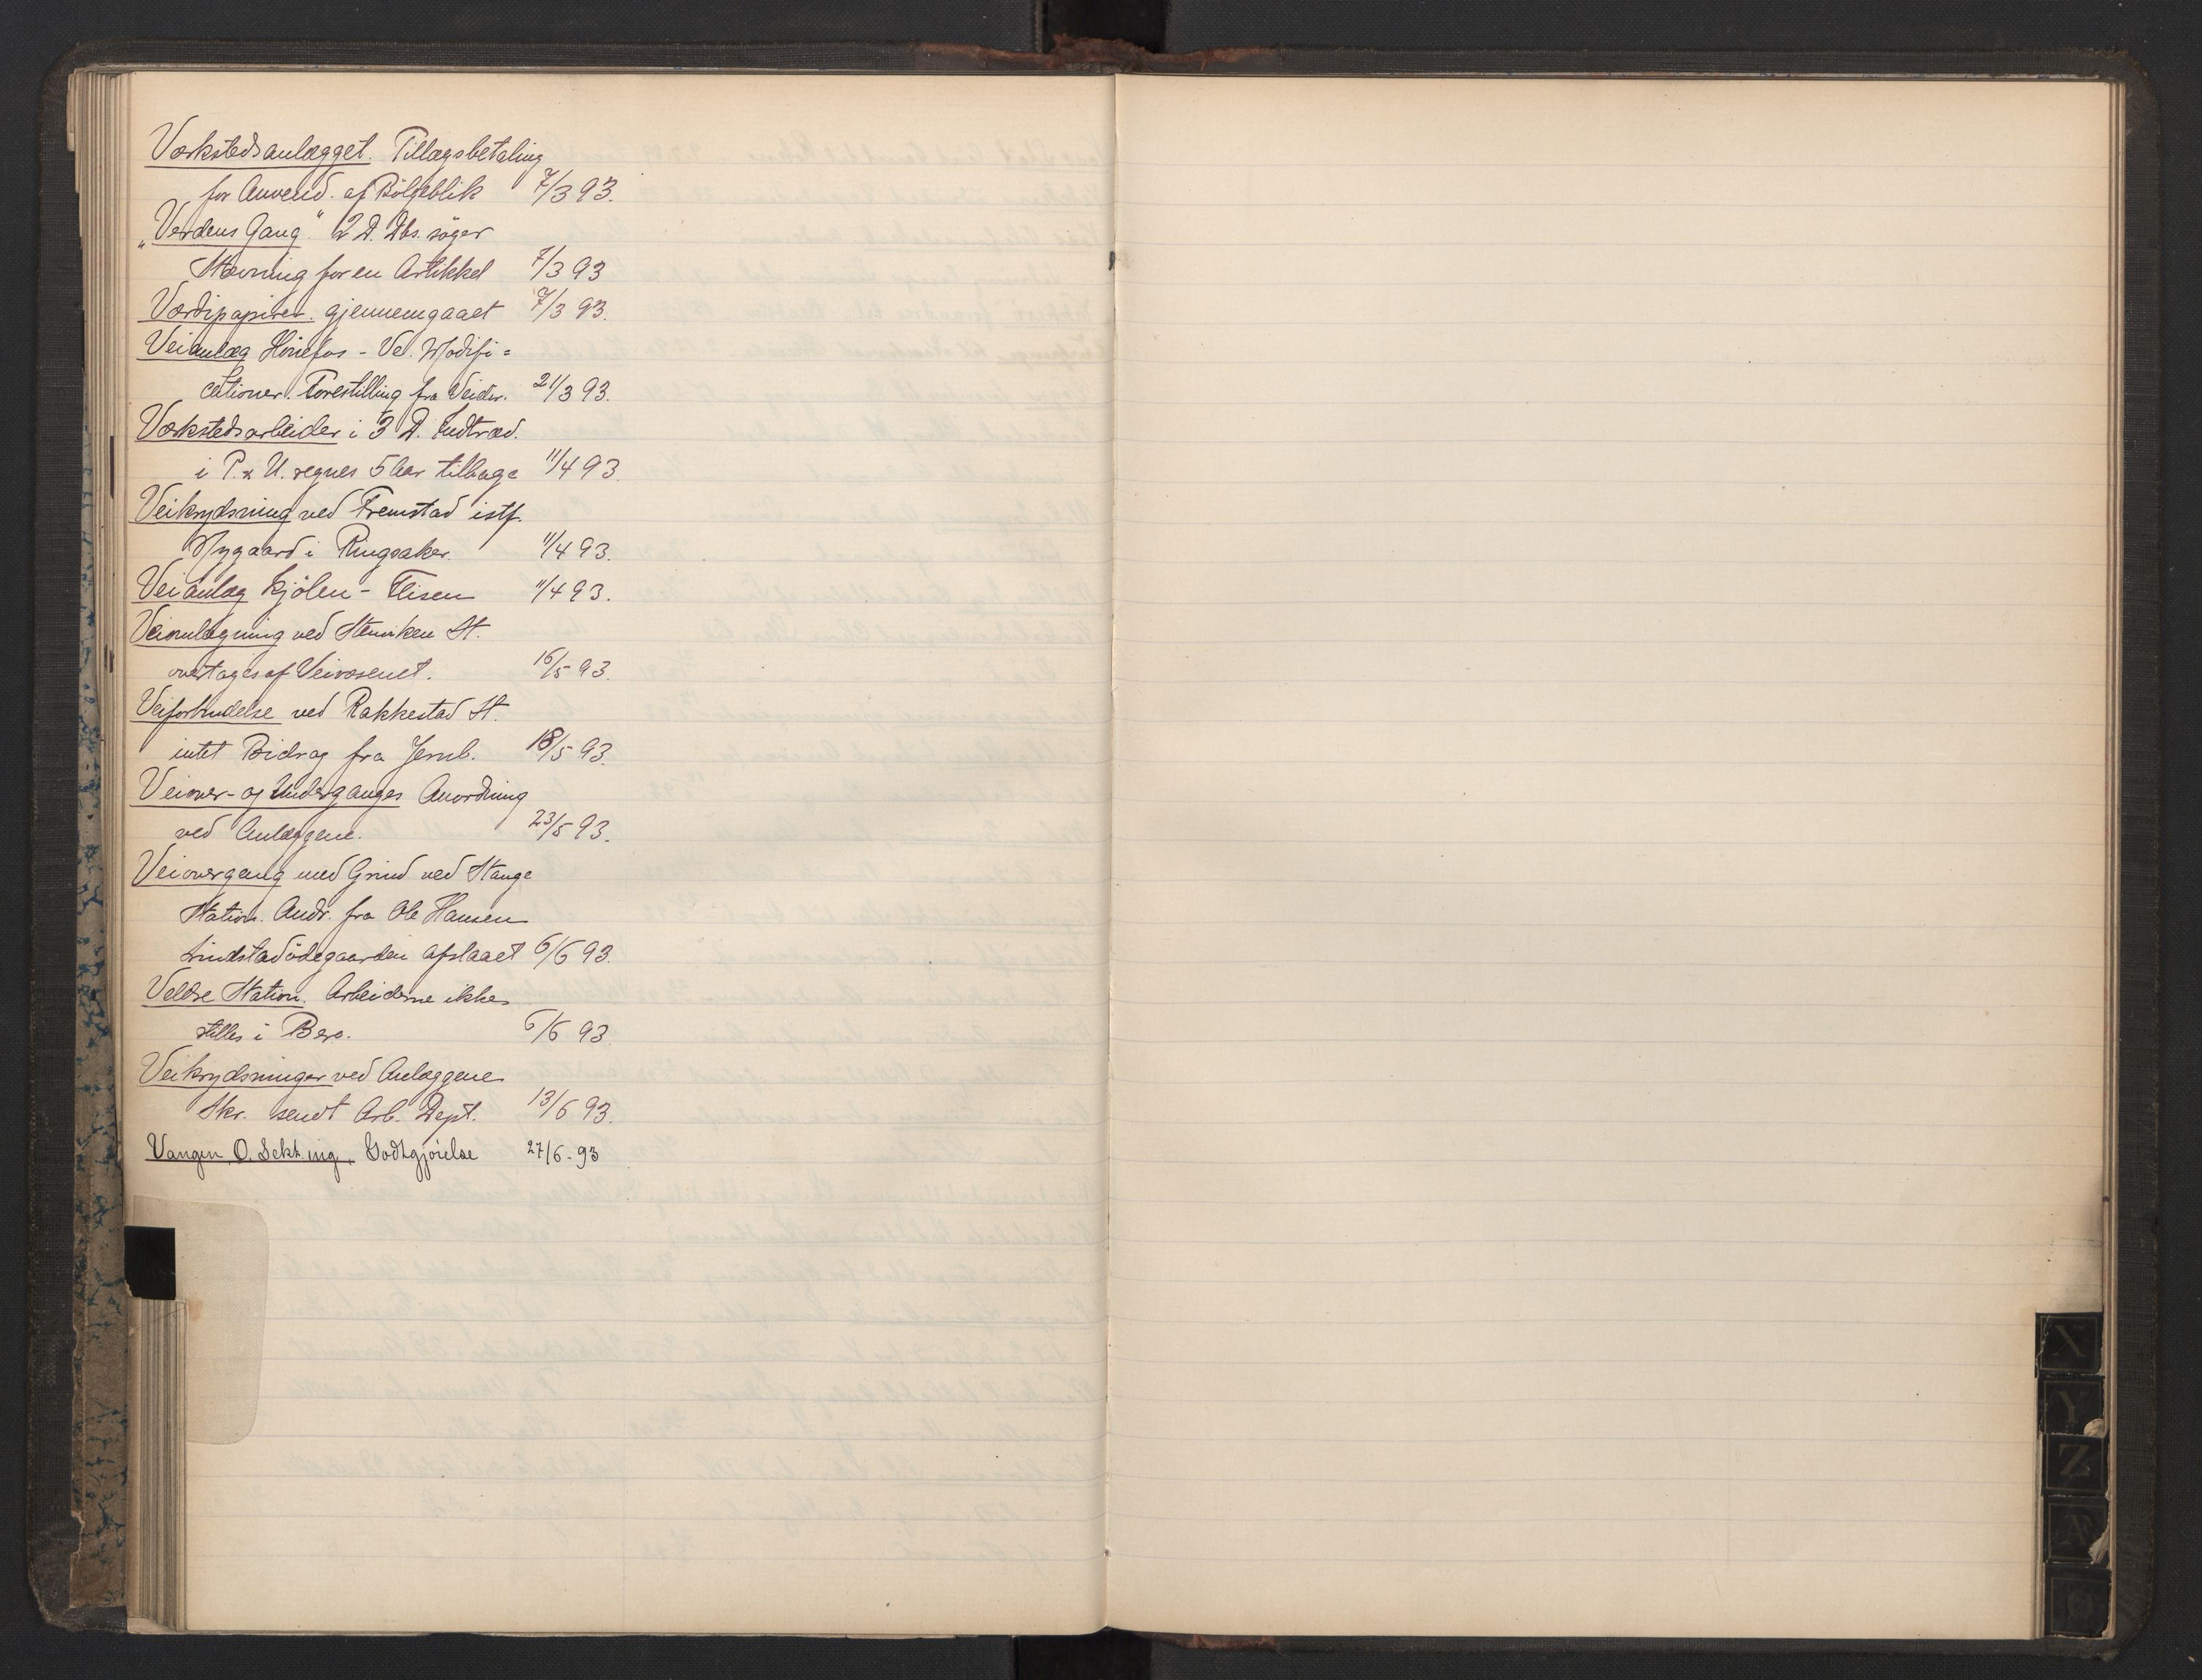 Værkstedsanlægget. Tillægsbetaling
for Anvend. af Bölgeblik 7/3 93.
„Verdens Gang“ 2 D. Dbs. söger
Stævning for en Artikkel 7/3 93
Værdipapirer. gjennemgaaet 7/3 93.
Veianlæg Hönefos - Ve. Modifi=
cationer. Forestilling fra Veidir. 21/3 93.
Værkstedsarbeider i 3 D. Indtræd.
i P. & U. regnes 5 Aar tilbage 11/4 93.
Veikrydsning ved Fremstad istf.
Nygaard i Ringsaker. 11/4 93.
Veianlæg Kjölen - Flisen 11/4 93.
Veiomlægning ved Stenviken St.
overtages af Veivæsenet. 16/5 93.
Veiforbindelse ved Rakkestad St.
intet Bidrag fra Jernb. 18/5 93.
Veiover- og Underganges Anordning
ved Anlæggene. 23/5 93.
Veiovergang med Grind ved Stange
Station. Andr. fra Ole Hansen
Lindstadödegaarden afslaaet 6/6 93.
Veldre Station. Arbeiderne ikke
stilles i Bero. 6/6 93.
Veikrydsninger ved Anlæggene
Skr. sendt Arb. Dept. 13/6 93.
Vangen, O. Sekt. ing. Godtgjörelse 27/6 - 93
X
Y
Z
Æ
Ø